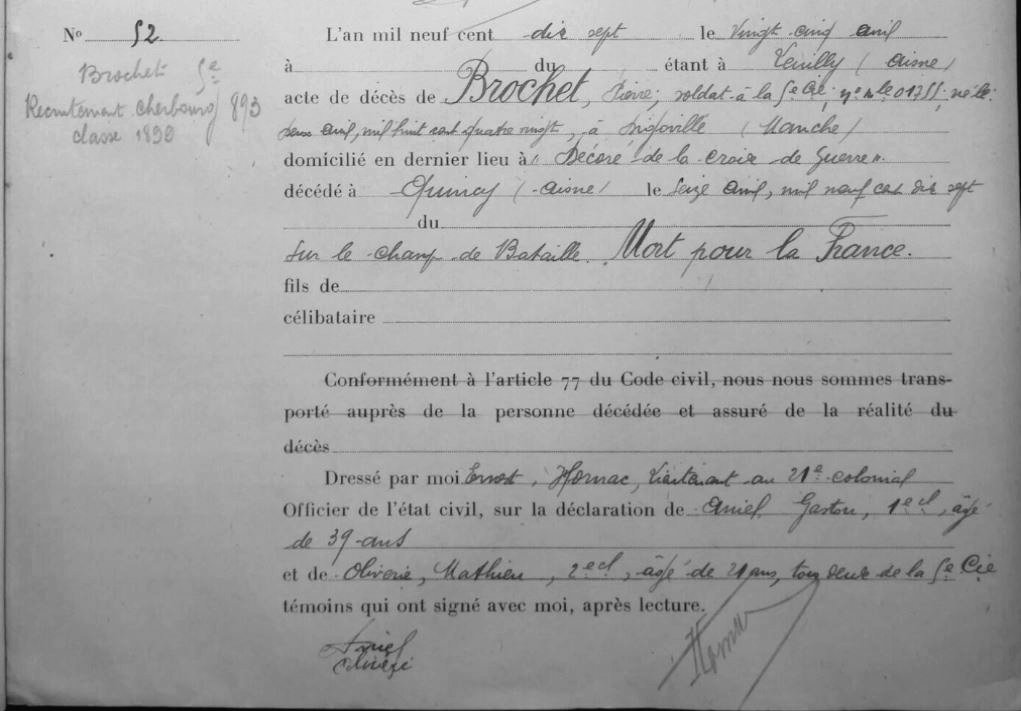 N° 52
Brochet 5e
Recrutement Cherbourg 893
classe 1890
L'an mil neuf cent dix sept le vingt cinq avril
à du étant à (Aisne)
acte de décès de Brochet, Pierre, soldat à la 5e Cie; né le:
deux avril, mil huit cent quatre vingt, à Digoville (Manche)
domicilié en dernier lieu à " Décoré de la croix de Guerre ".
décédé à Quincy (Aisne) le seize avril, mil neuf cent dix sept
du
sur le champ de Bataille. Mort pour la France.
fils de
célibataire
Conformément à l'article 77 du Code civil, nous nous sommes trans-
porté auprès de la personne décédée et assuré de la réalité du
décès
Dressé par moi Ernest, Hornac, Lieutenant au 21e colonial
Officier de l'état civil, sur la déclaration de Amiel Gaston, 1e cl, âgé
de 39 ans
et de Mathieu, 2e cl, âgé de 21 ans, tous deux de la 5e Cie
témoins qui ont signé avec moi, après lecture.
Amiel